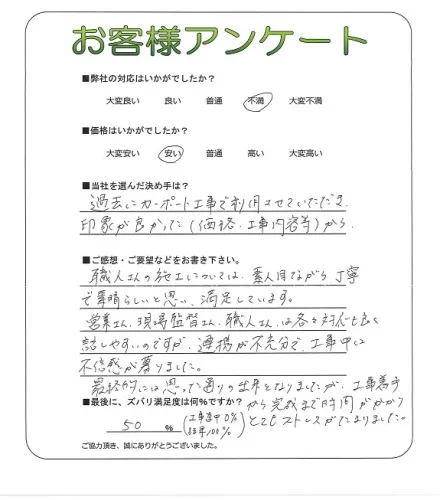 お客様アンケート
■弊社の対応はいかがでしたか？
大変良い 良い 普通 不満 大変不満
■価格はいかがでしたか？
大変安い 安い 普通 高い 大変高い
■当社を選んだ決め手は？
過去にカーポート工事で利用させていただき
印象が良かった（価格・工事内容等）から
■ご感想・ご要望などをお書き下さい。
職人さんの施工については、素人目ながら丁寧
で素晴らしいと思い、満足しています。
営業さん、現場監督さん、職人さん、は各々対応も良く
話しやすいのですが、連携が不充分で、工事中に
不信感が募りました。
最終的には思った通りの出来となりましたが、工事着手
から完成まで時間がかかり
とてもストレスがたまりました。
■最後に、ズバリ満足度は何%ですか？
50 % (工事途中0% 結果100%)
ご協力頂き、誠にありがとうございました。